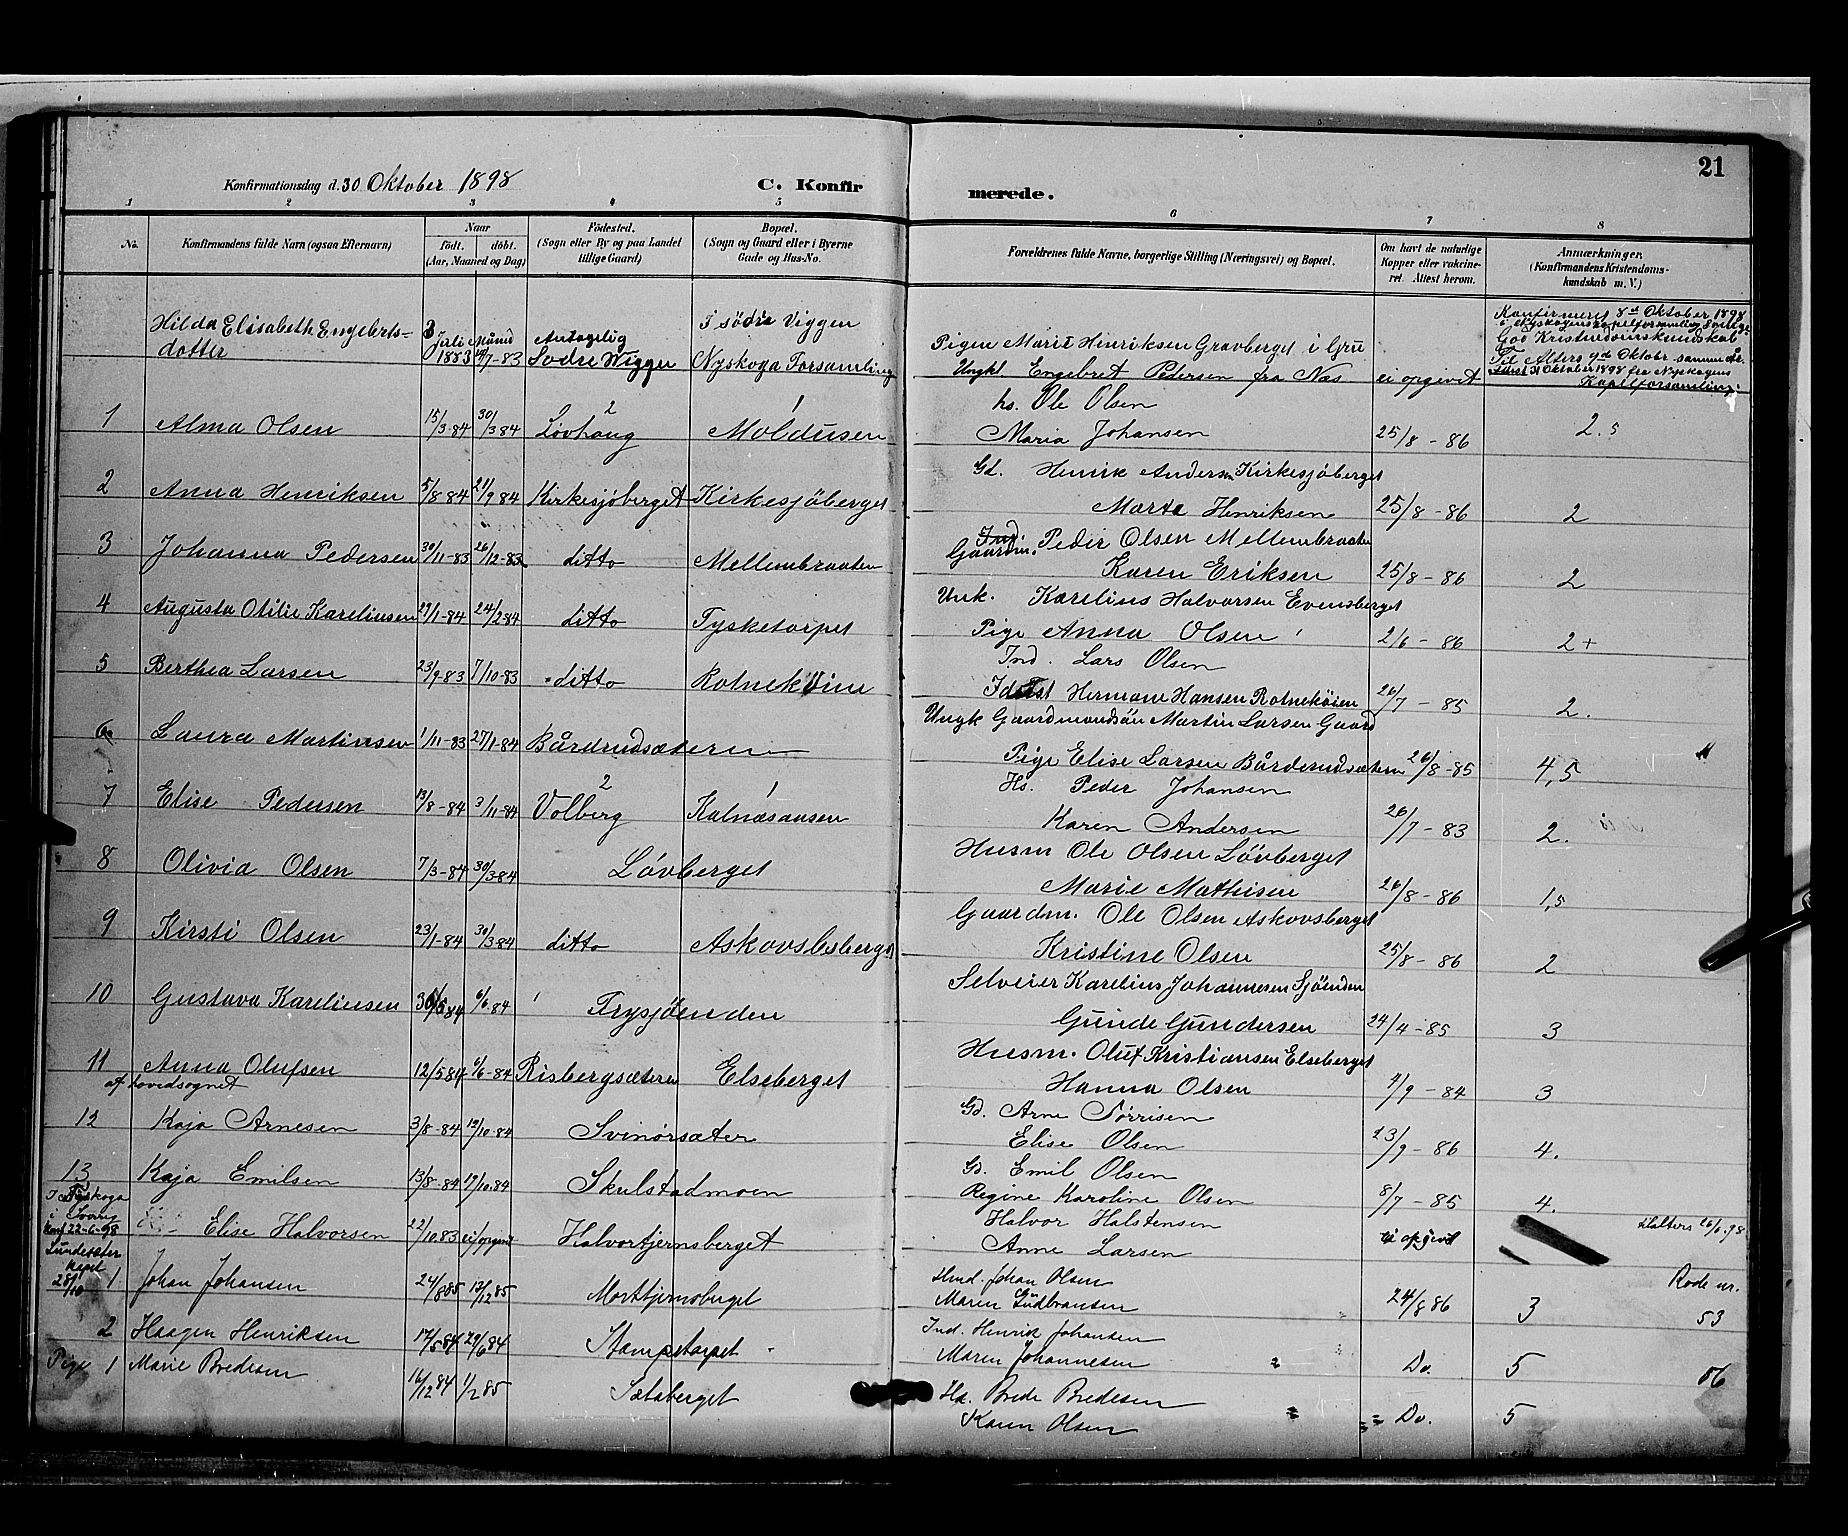 21
Konfirmationsdag d. 30 Oktober 1898 C. Konfir merede.
1 2 3 4 5 6 7 8
No. Konfirmandens fulde Navn (ogsaa Efternavn) Naar født. døbt. (Aar, Maaned og Dag) Fødested. (Sogn eller By og paa Landet tillige Gaard) Bopæl. (Sogn og Gaard eller i Byerne Gade og Hus-No. Forældrenes fulde Navne, borgerlige Stilling (Næringsvei) og Bopæl. Om havt de naturlige Kopper eller vakcineret. Attest herom. Anmærkninger. (Konfirmandens Kristendomskundskab m. V.)
Hilda Elisabeth Engebrets- 3 Juli Antagelig I södre Viggen Konfirmeret 8de Oktober 1898
dotter 1883 7-83 Södre Wiggen Nyskoga Forsamling Pigen Marit Henriksen Gravberget i Gru God Kristendomskundskab
Ungkl Engebret Pedersen fra Nas ei opgivet Oktober 1898 fra Nyskogens
Kapelforsamling.
hs. Ole Olsen
1 Alma Olsen 15/3-84 30/3 84 Lövhaug 2 Möldusen 1 Maria Johansen 25/8-86 2.5
Gd. Henrik Andersn Kirkesjöberget
2 Anna Henriksen 5/8 84 21/9 84 Kirkesjöberget Kirkesjöberget Marte Henriksen 25/8-86 2
Gaardm. Peder Olsen Mellembraaten
3 Johanna Pedersen 30/11-83 26/12-83 ditto Mellembraaten Karen Eriksen 25/8-86 2
Unk. Karelius Halvorsen Evensberget
4 Augusta Otilie Kareliusen 29/1-84 24/2-84 ditto Tysketorpet Pige Anna Olsen 2/6-86 2+
Ind. Lars Olsen
5 Berthea Larsen 23/9 83 7/10-83 ditto Rotneköien Hermane Hansen Rotneköien 26/7-85 2.
Ungk Gaardmandsön Martin Larsen Gaard
6 Laura Martinsen 1/11-83 27/1-84 Bårdrudsætern Pige Elise Larsen Bårderudsætern 26/8-85 4,5
Hs. Peder Johansen
7 Elise Pedersen 13/8-84 3/11-84 Volberg 2 Kalnæsaasen 1 Karen Andersen 26/7-83 2.
Husm Ole Olsen Lövberget
8 Olivia Olsen 7/3-84 30/3 84 Lövberget Marie Mathisen 26/8-86 1,5
Gaardm. Ole Olsen Askovsberget
9 Kirsti Olsen 23/1-84 30/3 84 ditto Askovsbesberget Kristine Olsen 25/8-86 2
Selveier Karelius Johannesen Sjöenden
10 Gustava Kareliusen 30/5 84 6/6 84 Frysjöenden Gunde Gundersen 24/4-85 3
Husm. Oluf Kristiansen Elseberget
11 Anna Olufsen 12/5 84 6/6-84 Risbergsæteren Elseberget Hanna Olsen 4/9-84 3
af hovedsognet
Gd. Arne Sörrisen
12 Kaja Arnesen 3/8-84 19/10-84 Svinörsæter Elise Olsen 23/9-86 4.
Gd. Emil Olsen
13 Kaja Emilsen 13/8-84 19/10 84 Skulstadmoen Regine Karoline Olsen 8/7-85 4.
i Sverig
Konf 22-6-98 Elise Halvorsen 22/10 83 ei opgivet Halvortjernsberget Halvor Halstensen ei opgivet Italters 26/6.98
Anne Larsen
Lundersæter Kapel
28/10 1 Johan Johansen 24/8 85 13/12 85 Morttjernsberget Hmd. Johan Olsen Rode nr.
Maren Gudbransen 24/8 86 3 53
2 Haagen Henriksen 17/5 84 29/6 84 Stampetorpet Ind. Henrik Johansen
Maren Johannesen Do. 5 56
Pige 1 Marie Bredesen 16/12 84 1/2 85 Sætaberget Hd. Brede Bredesen
Karen Olsen Do. 5